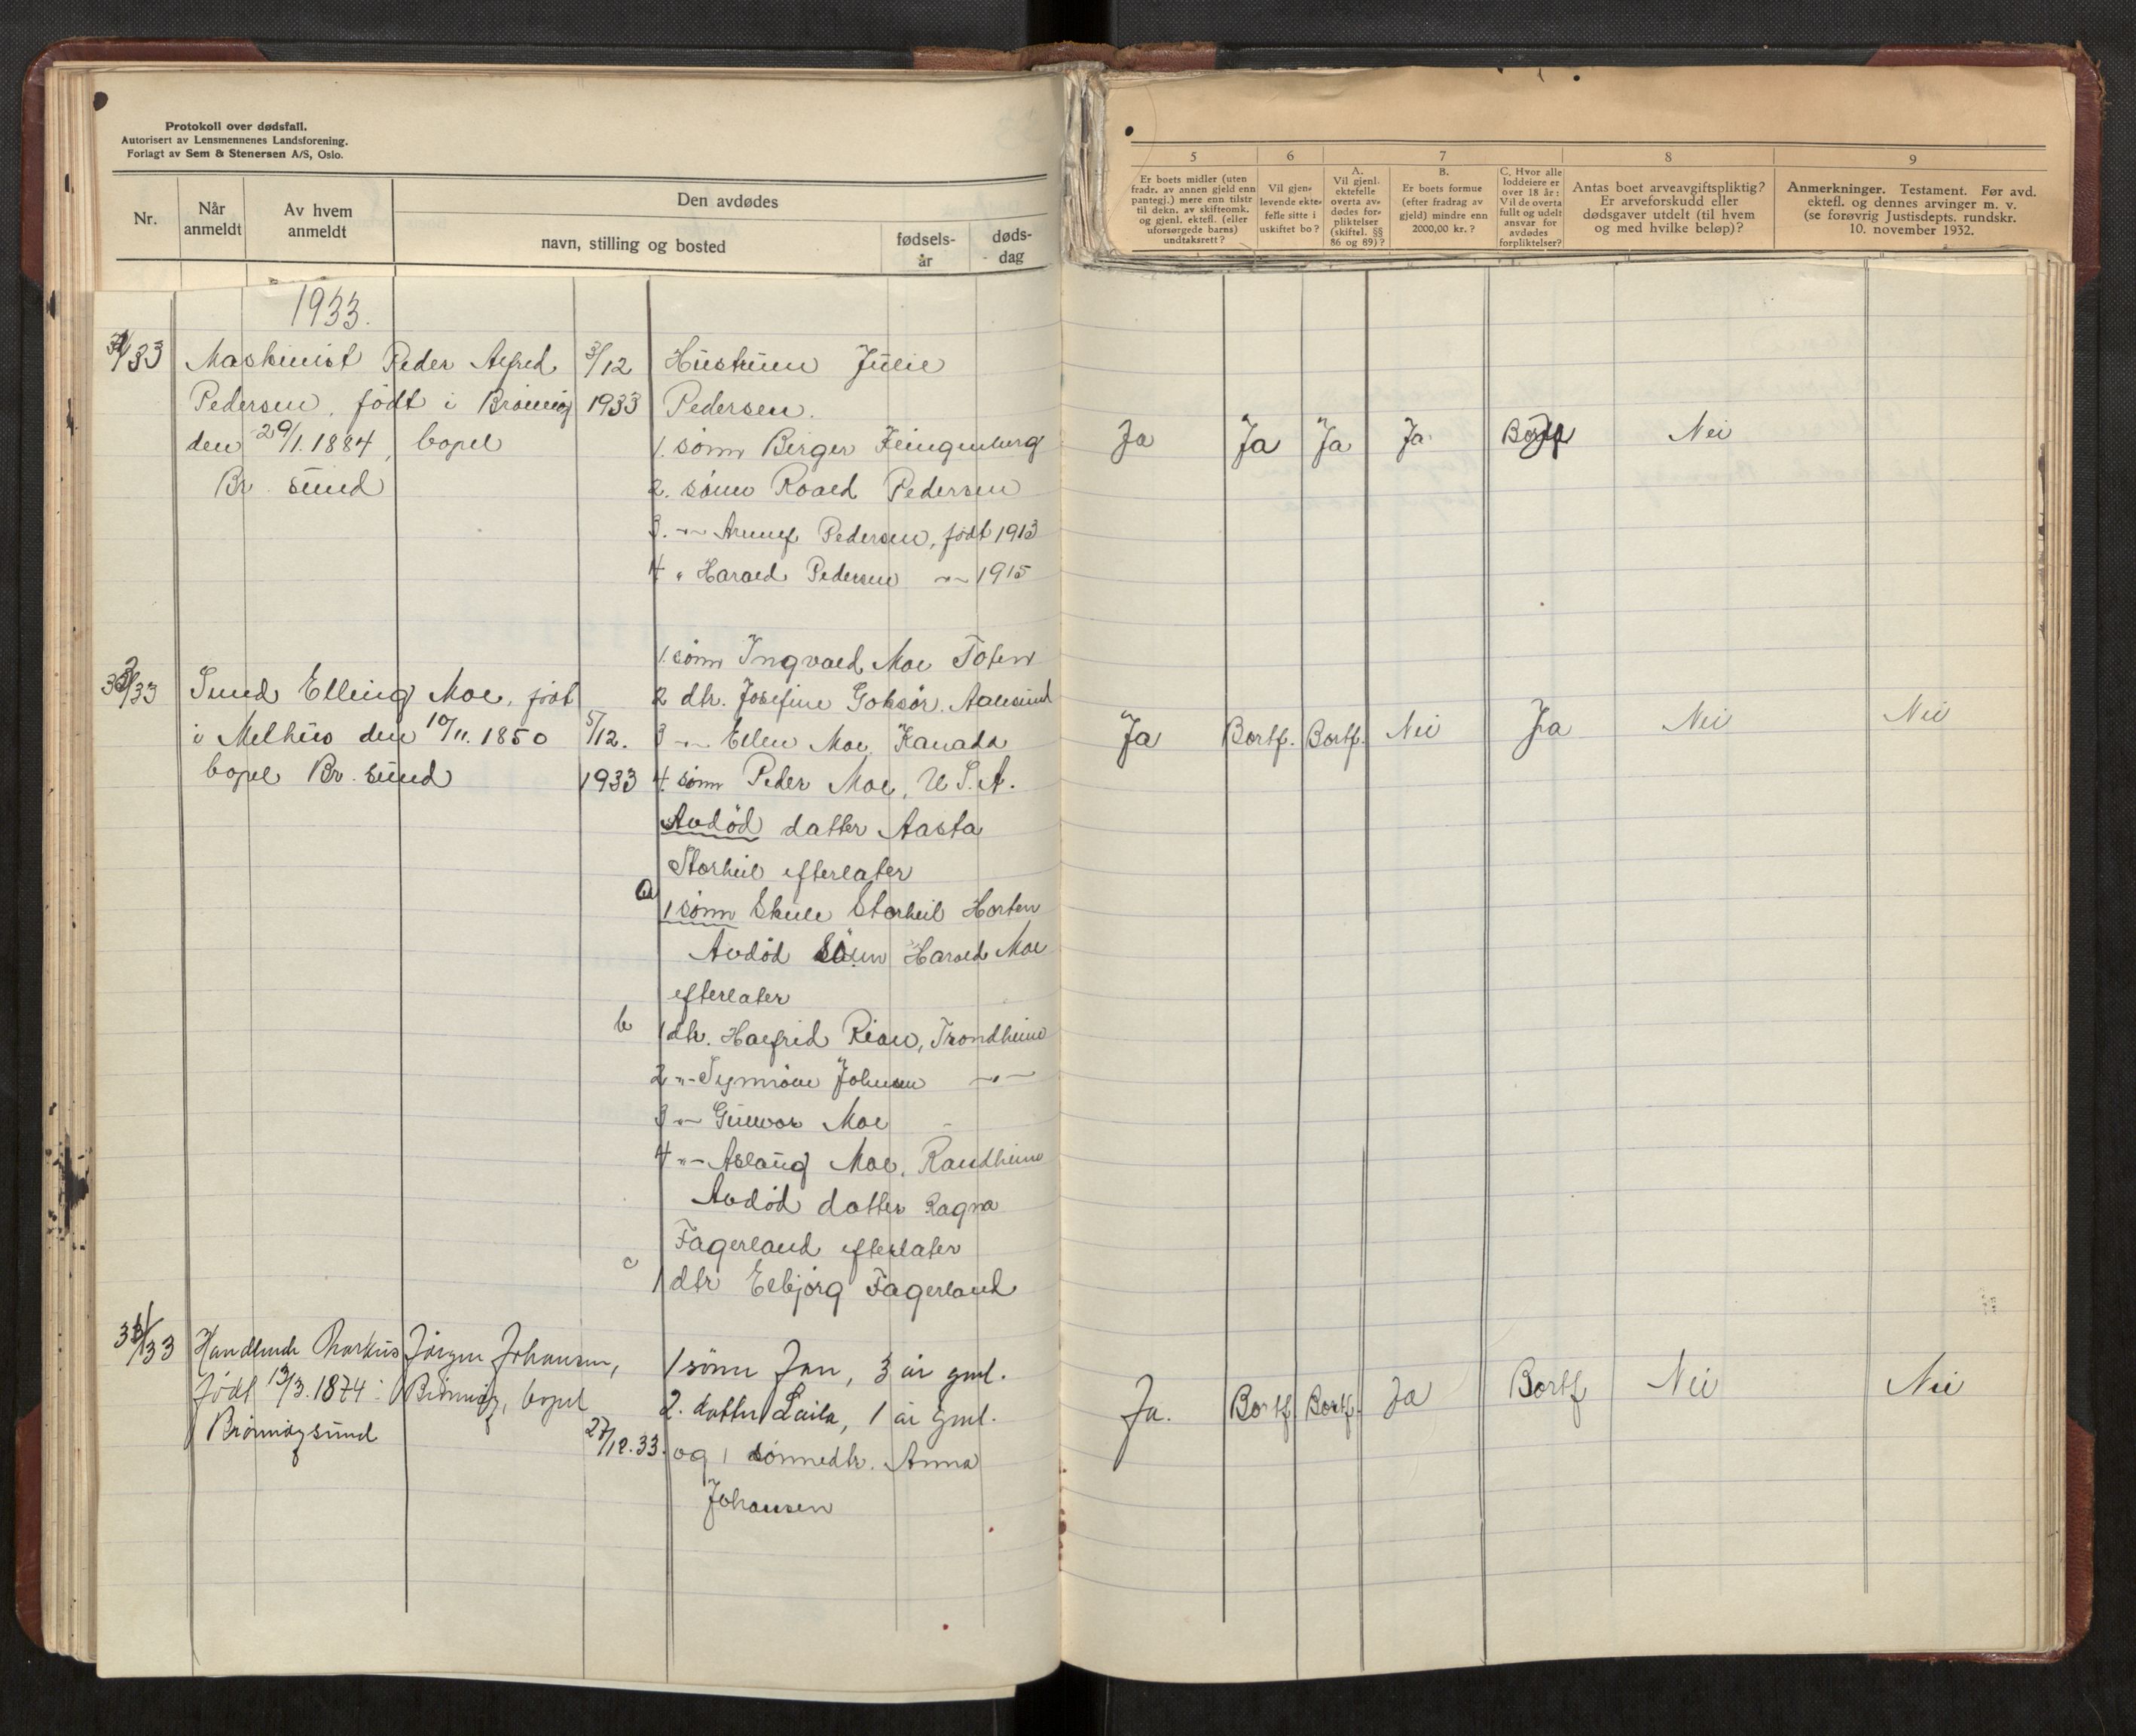 Protokoll over dødsfall.
Autorisert av Lensmennenes Landsforening.
Forlagt av Sem & Stenersen A/S, Oslo.
Nr.
Når
anmeldt
Av hvem
anmeldt
Den avdødes
navn, stilling og bosted
fødsels-
år
døds-
dag
5
Er boets midler (uten
fradr. av annen gjeld enn
pantegj.) mere enn tilstr
til dekn. av skifteomk.
og gjenl. ektefl. (eller
uforsørgede barns)
undtaksrett?
6
Vil gjen-
levende ekte-
felle sitte i
uskiftet bo?
7
A.
Vil gjenl.
ektefelle
overta av-
dødes for-
pliktelser
(skiftel. §§
86 og 89)?
B.
Er boets formue
(efter fradrag av
gjeld) mindre enn
2000,00 kr.?
C. Hvor alle
loddeiere er
over 18 år:
Vil de overta
fullt og udelt
ansvar for
avdødes
forpliktelser?
8
Antas boet arveavgiftspliktig?
Er arveforskudd eller
dødsgaver utdelt (til hvem
og med hvilke beløp)?
9
Anmerkninger. Testament. Før avd.
ektefl. og dennes arvinger m. v.
(se forøvrig Justisdepts. rundskr.
10. november 1932.
1933.
/33
Maskinist Peder Alfred
Pedersen, født i Brønnøy
den 29/1.1884, bopel
Br. sund
3/12
1933
Hustruen Julie
Pedersen.
1. sønn Birger Klingenberg
2. sønn Roald Pedersen
3. -"- Pedersen, født 1913
4 " Harald Pedersen -"- 1915
Ja
Ja
Ja
Ja
Bortf
Nei
/33
Elling Moe, født
i Melhus den 10/11.1850
bopel Br. sund
5/12.
1933
1. sønn Ingvald Moe Toten
2 dtr. Josefine Goksør. Aalesund
3 -"- Ellen Moe, Kanada
4. sønn Peder Moe, U.S.A.
Avdød datter Aasta
Storheil efterlater
a
1 sønn Skule Storheil Horten
Avdød sønn Harald Moe
efterlater
b
1 dtr. Halfrid Rian, Trondheim
2 -"- Synnøve Johnsen -"-
3 -"- Gunvor Moe -
4 -"- Aslaug Moe, Randheim
Avdød datter Ragna
Fagerland efterlater
c
1 dtr Eлbjørg Fagerland
Ja
Bortf.
Bortf.
Nei
Ja
Nei
Nei
/33
Handlende Markus Jørgen Johansen,
født 13/3.1874 i Brønnøy, bopel
Brønnøysund
27/12.33.
1 sønn Jan, 3 år gml.
2. datter Laila, 1 år gml.
og 1 sønnedtr. Anna
Johansen
Ja.
Bortf
Bortf.
Ja
Bortf
Nei
Nei